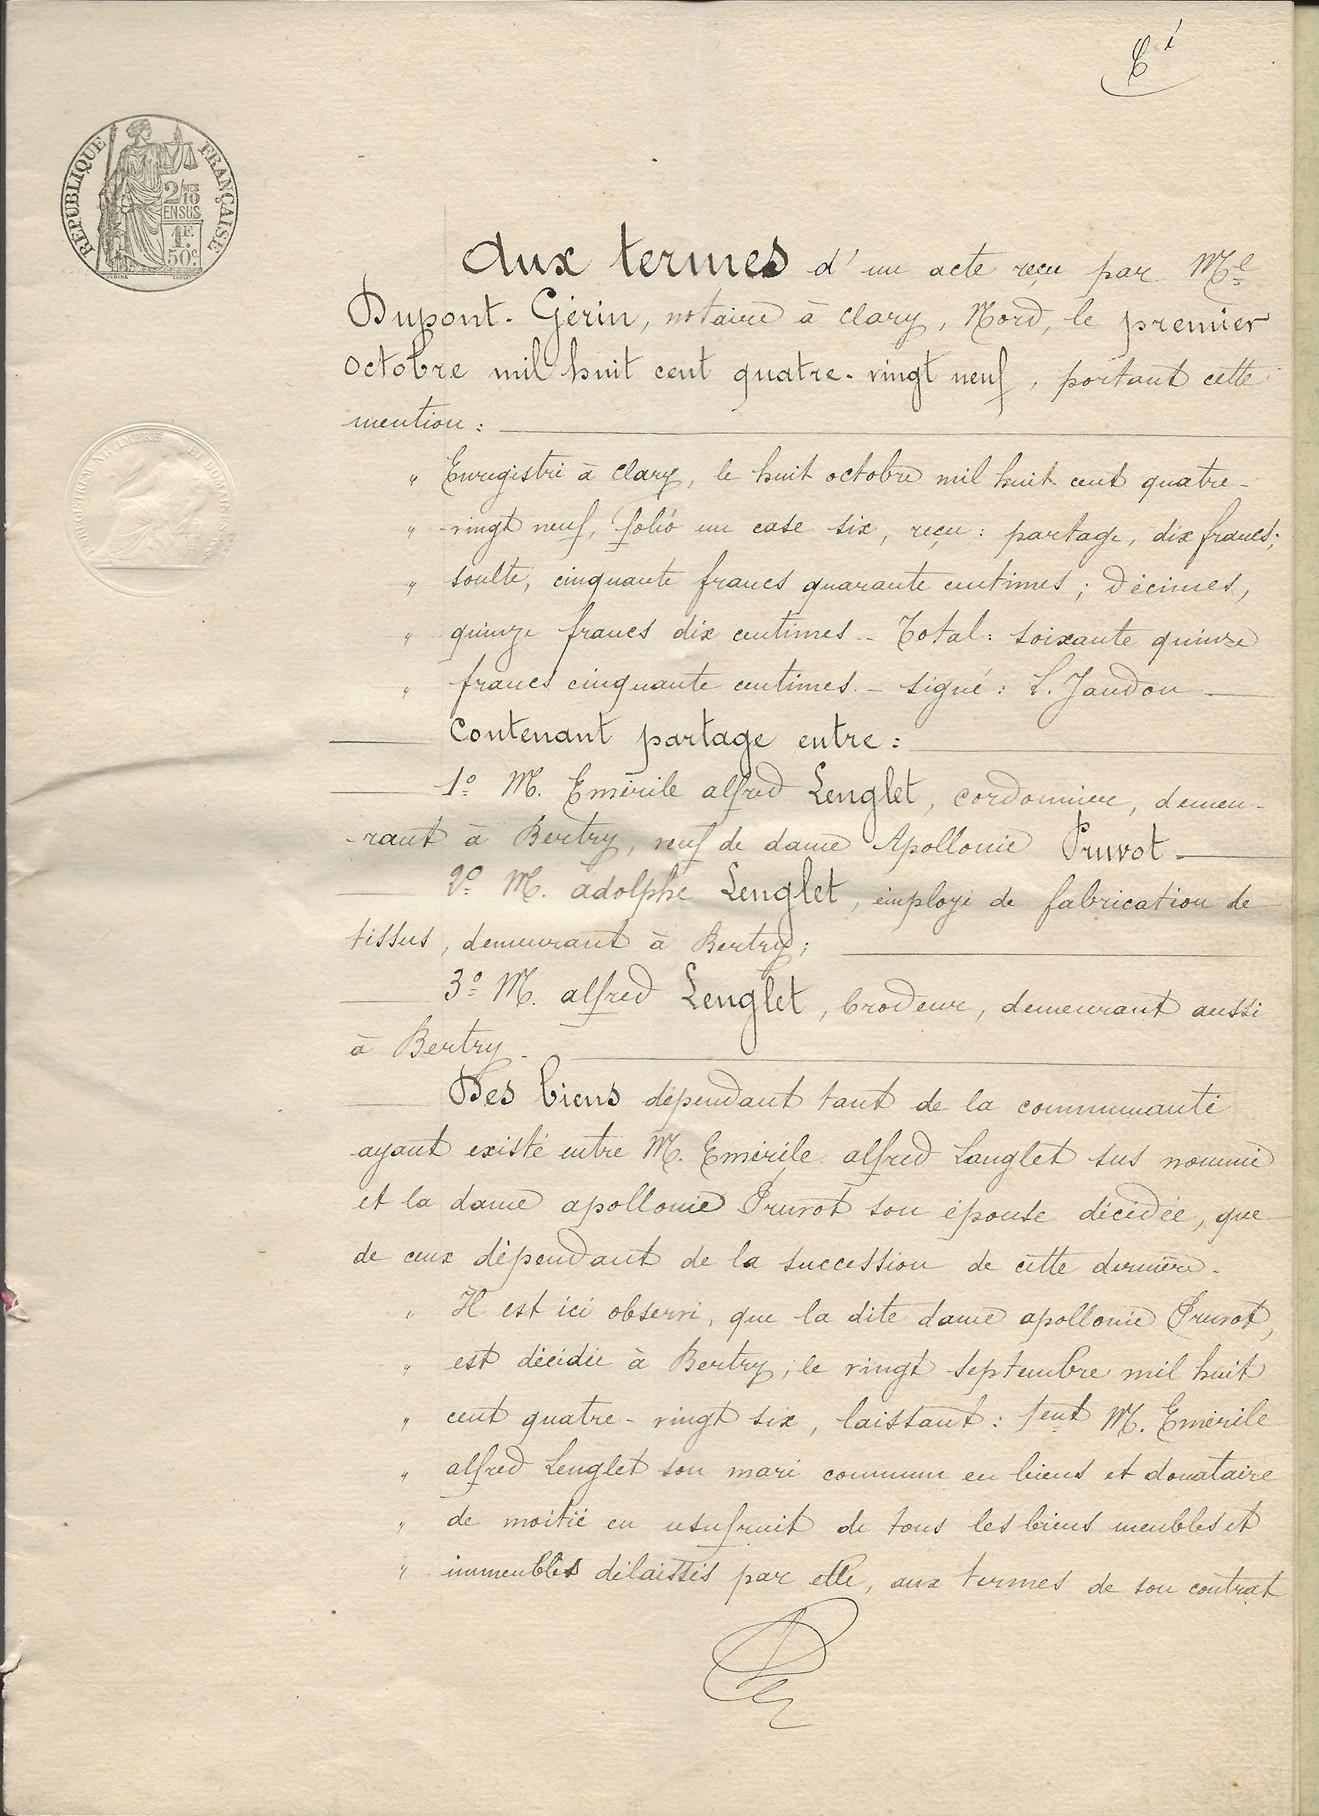 RÉPUBLIQUE FRANÇAISE
2/10 MES
EN SUS
1F.
50c.
Aux termes d'un acte reçu par Me
Dupont-Gérin, notaire à Clary, Nord, le premier
octobre mil huit cent quatre-vingt neuf, portant cette
mention :
" Enregistré à Clary, le huit octobre mil huit cent quatre-
" -vingt neuf, folio un case six, reçu : partage, dix francs;
" soulte, cinquante francs quarante centimes ; Décimes,
" quinze francs dix centimes - Total : soixante quinze
" francs cinquante centimes. - signé : L. Jaudon
Contenant partage entre :
1º M. Emérile alfred Lenglet, cordonnier, demeu-
-rant à Bertry, veuf de dame Apollonie Pruvot -
2º M. adolphe Lenglet, employé de fabrication de
tissus, demeurant à Bertry ;
3º M. alfred Lenglet, brodeur, demeurant aussi
à Bertry -
Des biens dépendant tant de la communauté
ayant existé entre M. Emérile alfred Langlet sus nommé
et la dame apollonie Pruvot son épouse décédée, que
de ceux dépendant de la succession de cette dernière.
" Il est ici observé, que la dite dame apollonie Pruvot,
" est décédée à Bertry, le vingt septembre mil huit
" cent quatre-vingt six, laissant : 1ent M. Emérile
" alfred Lenglet son mari commun en biens et donataire
" de moitié en usufruit de tous les biens meubles et
" immeubles délaissés par elle, aux termes de son contrat